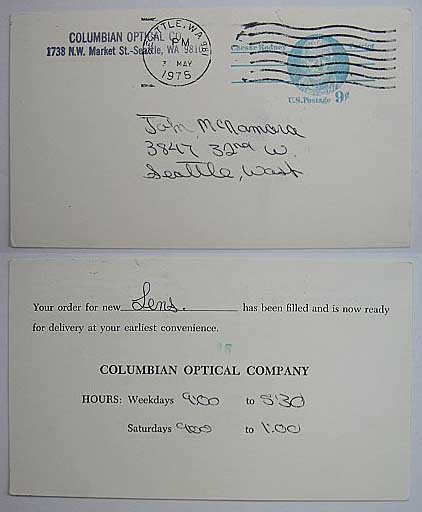 COLUMBIAN OPTICAL CO.
1738 N.W. Market St.-Seattle, WA 98107
SEATTLE, WA 981
PM
MAY
1975
Caesar Rodney Patriot
U.S. Postage 9¢
John McNamara
3847 32nd W.
Seattle, Wash
Your order for new Lens. has been filled and is now ready
for delivery at your earliest convenience.
COLUMBIAN OPTICAL COMPANY
HOURS: Weekdays 9:00 to 5:30
Saturdays 9:00 to 1:00